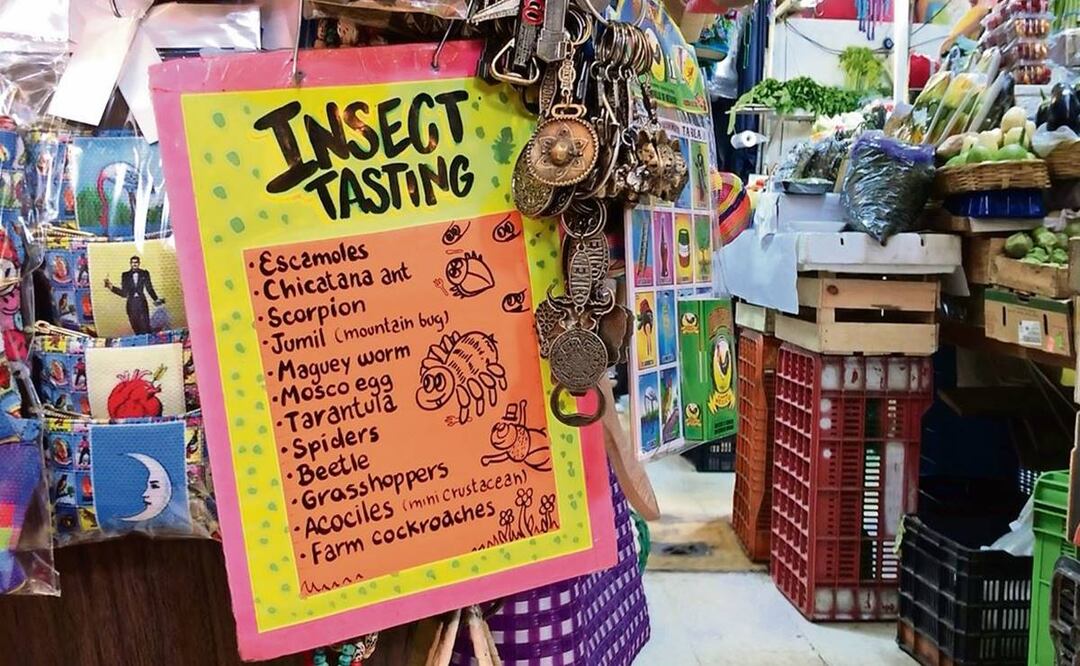 INSECT
TASTING
· Escamoles
· Chicatana ant
· Scorpion
· Jumil (mountain bug)
· Maguey worm
· Mosco egg
· Tarantula
· Spiders
· Beetle
· Grasshoppers
· Acociles (mini crustacean)
· Farm cockroaches
TABLA